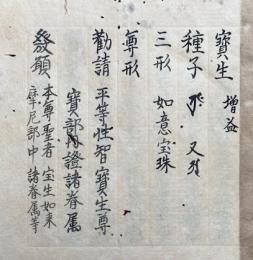 寳生 増益
種子 又
三形 如意宝珠
尊形
勸請 平等性智寳生尊
寳部内證諸眷属
發願 本尊聖者 宝生如来
摩尼部中 諸眷属等